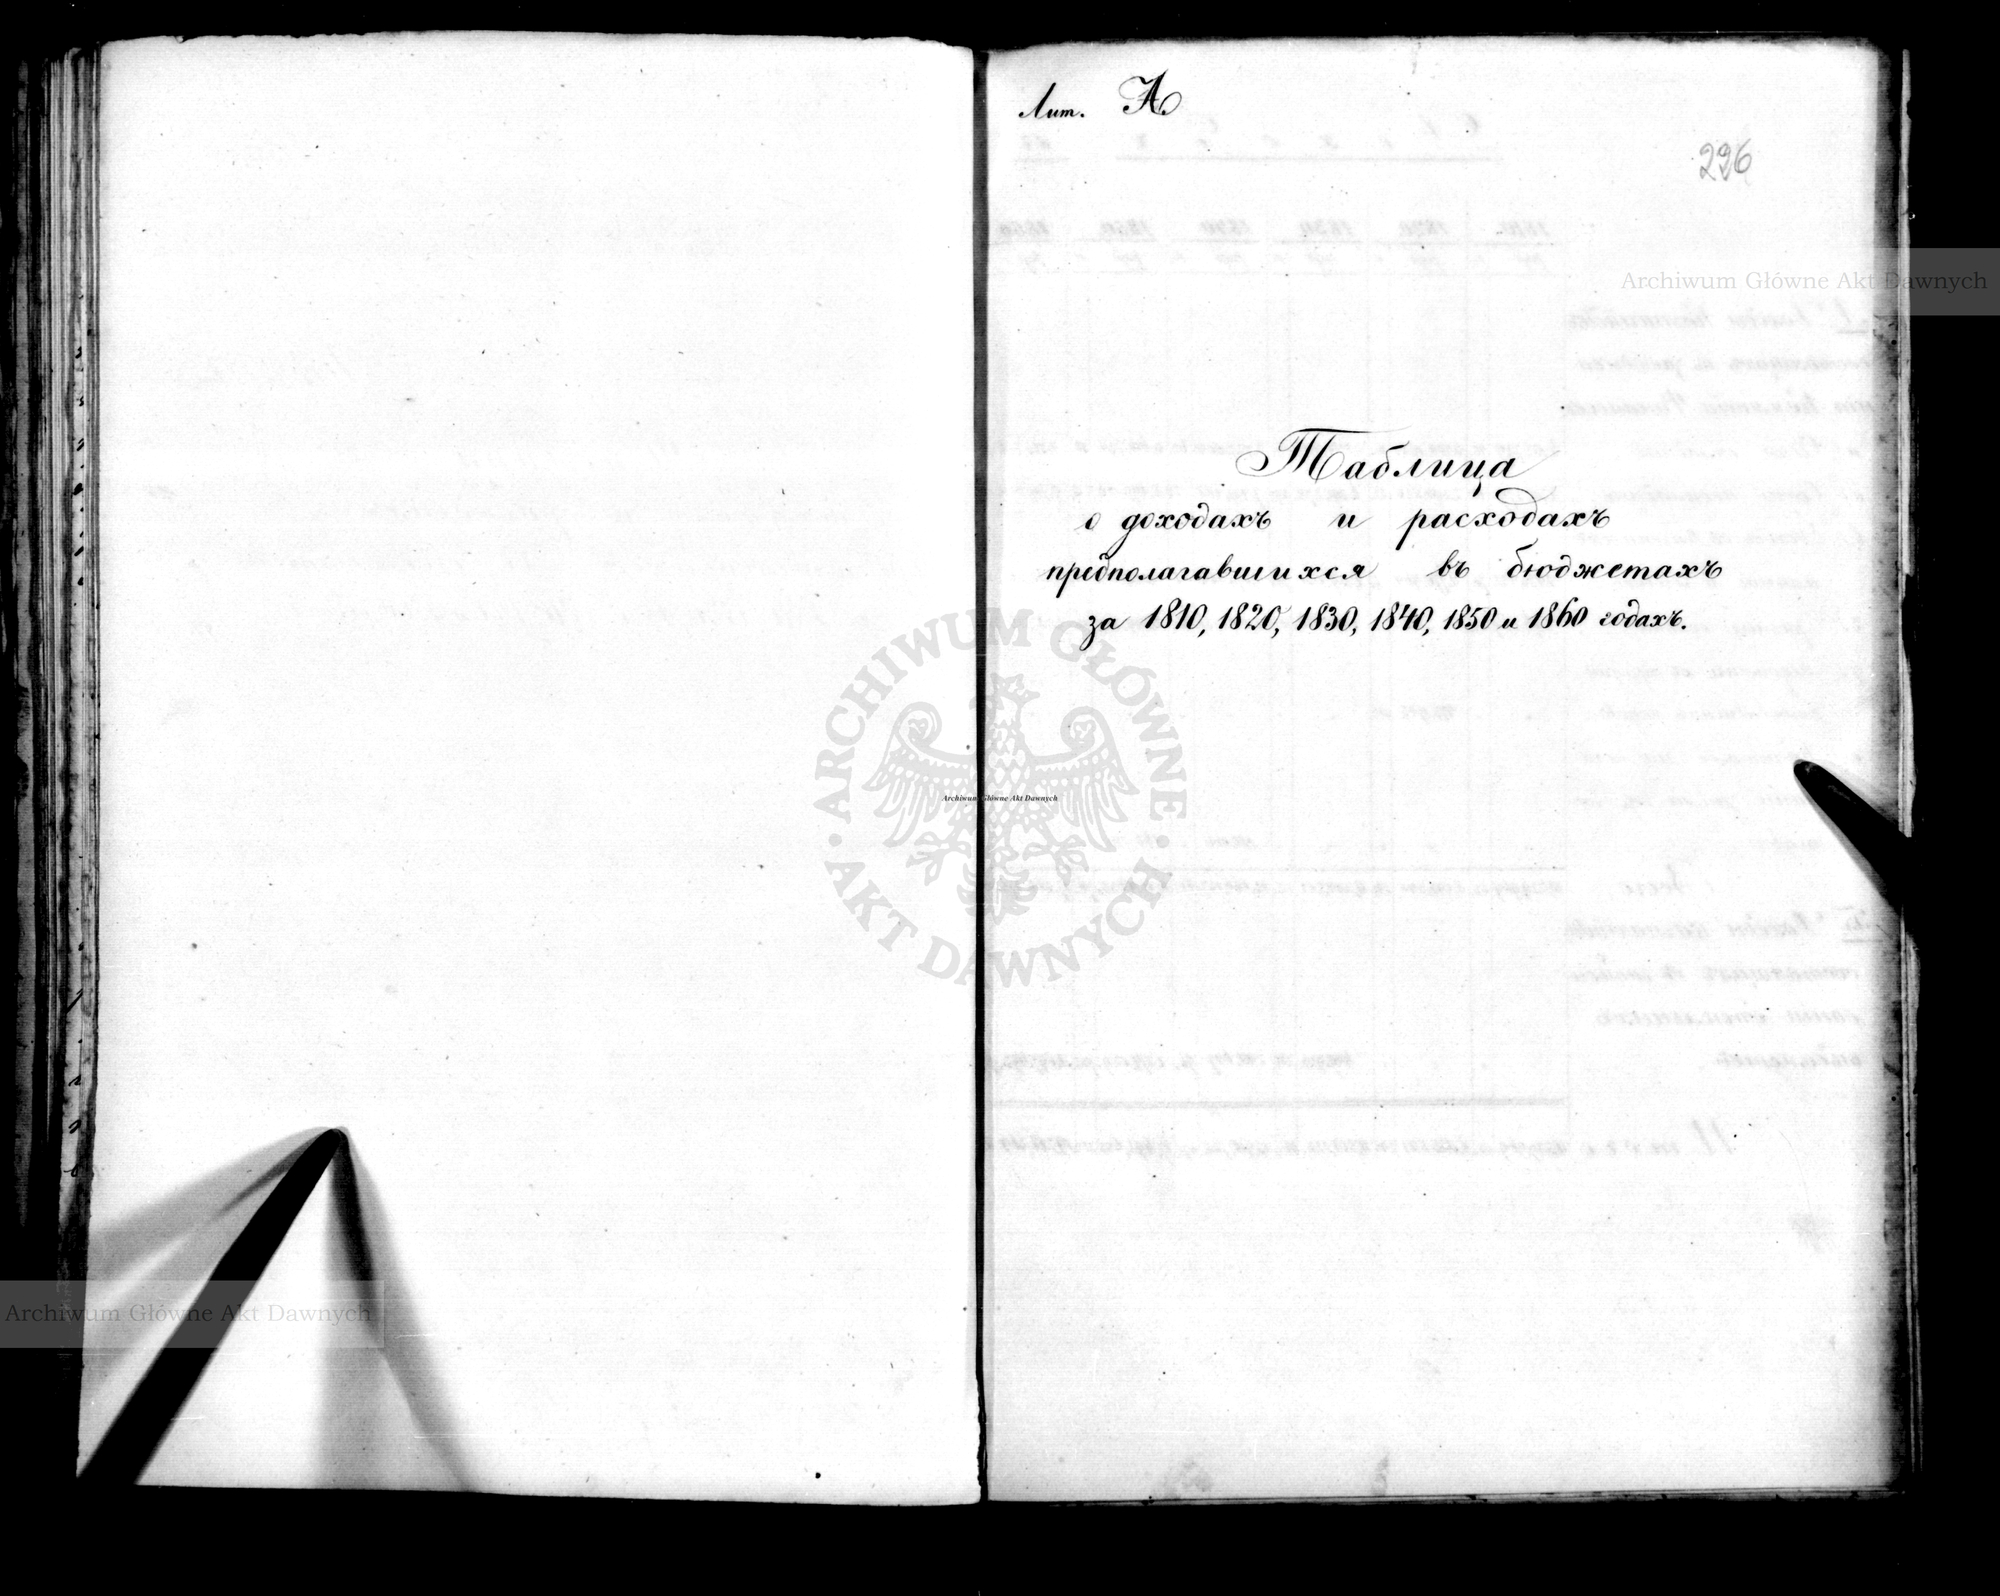 Лит. А
296
Таблица
о доходахъ и расходахъ
предполагавшихся въ бюджетахъ
за 1810, 1820, 1830, 1840, 1850 и 1860 годахъ.
Archiwum Główne Akt Dawnych
ARCHIWUM GŁÓWNE
AKT DAWNYCH
Archiwum Główne Akt Dawnych
Archiwum Główne Akt Dawnych